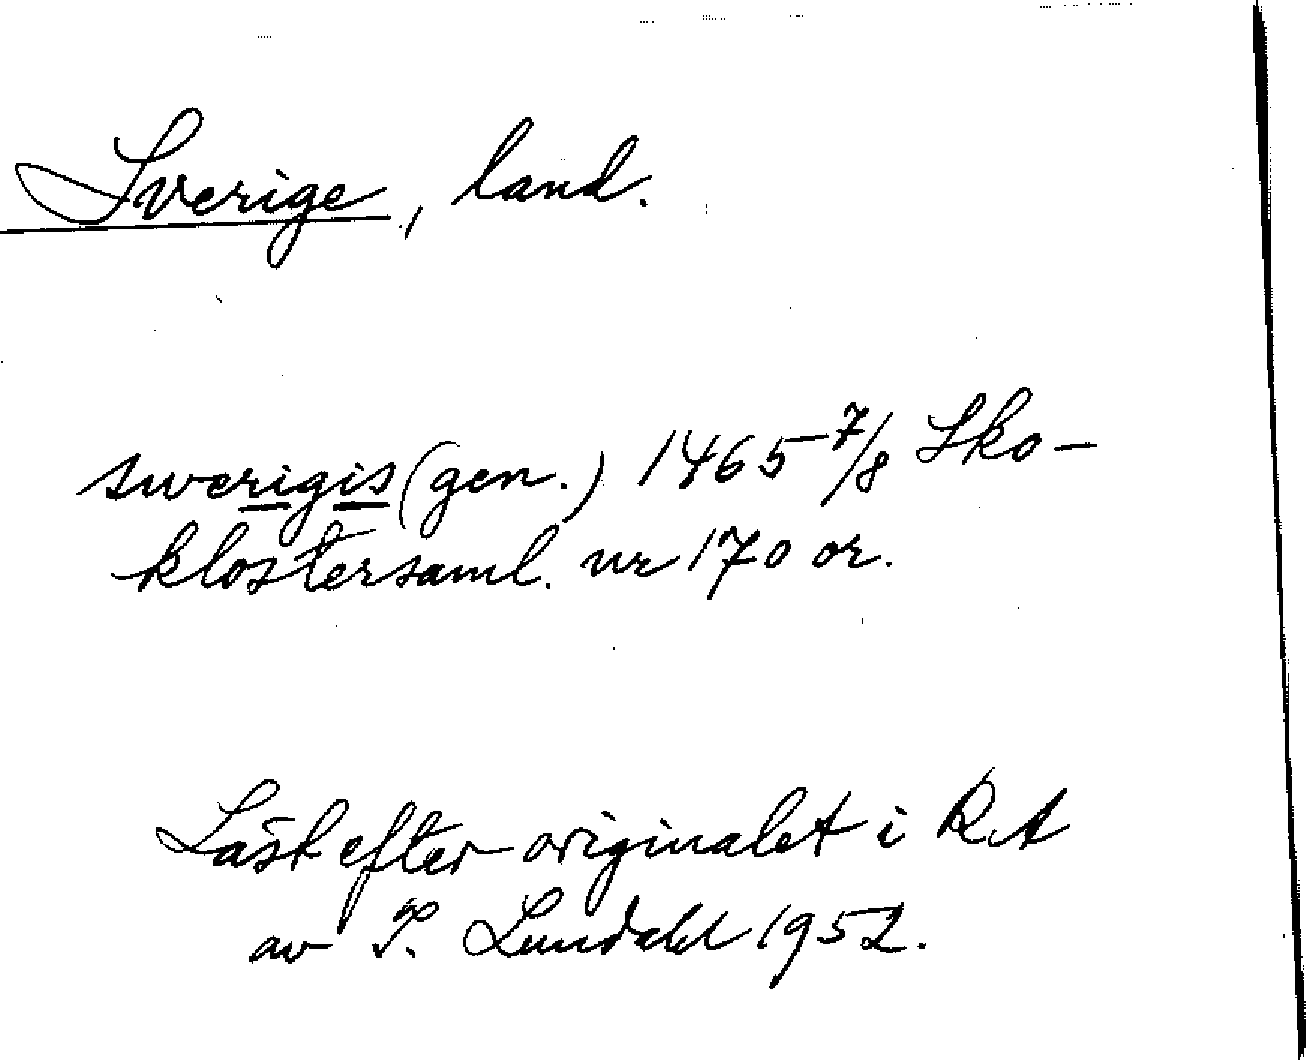 Sverige, land.
swerigis (gen.) 1465 7/8 Sko-
klostersaml. nr 170 or.
Läst efter originalet i RA
av I. Lundahl 1952.